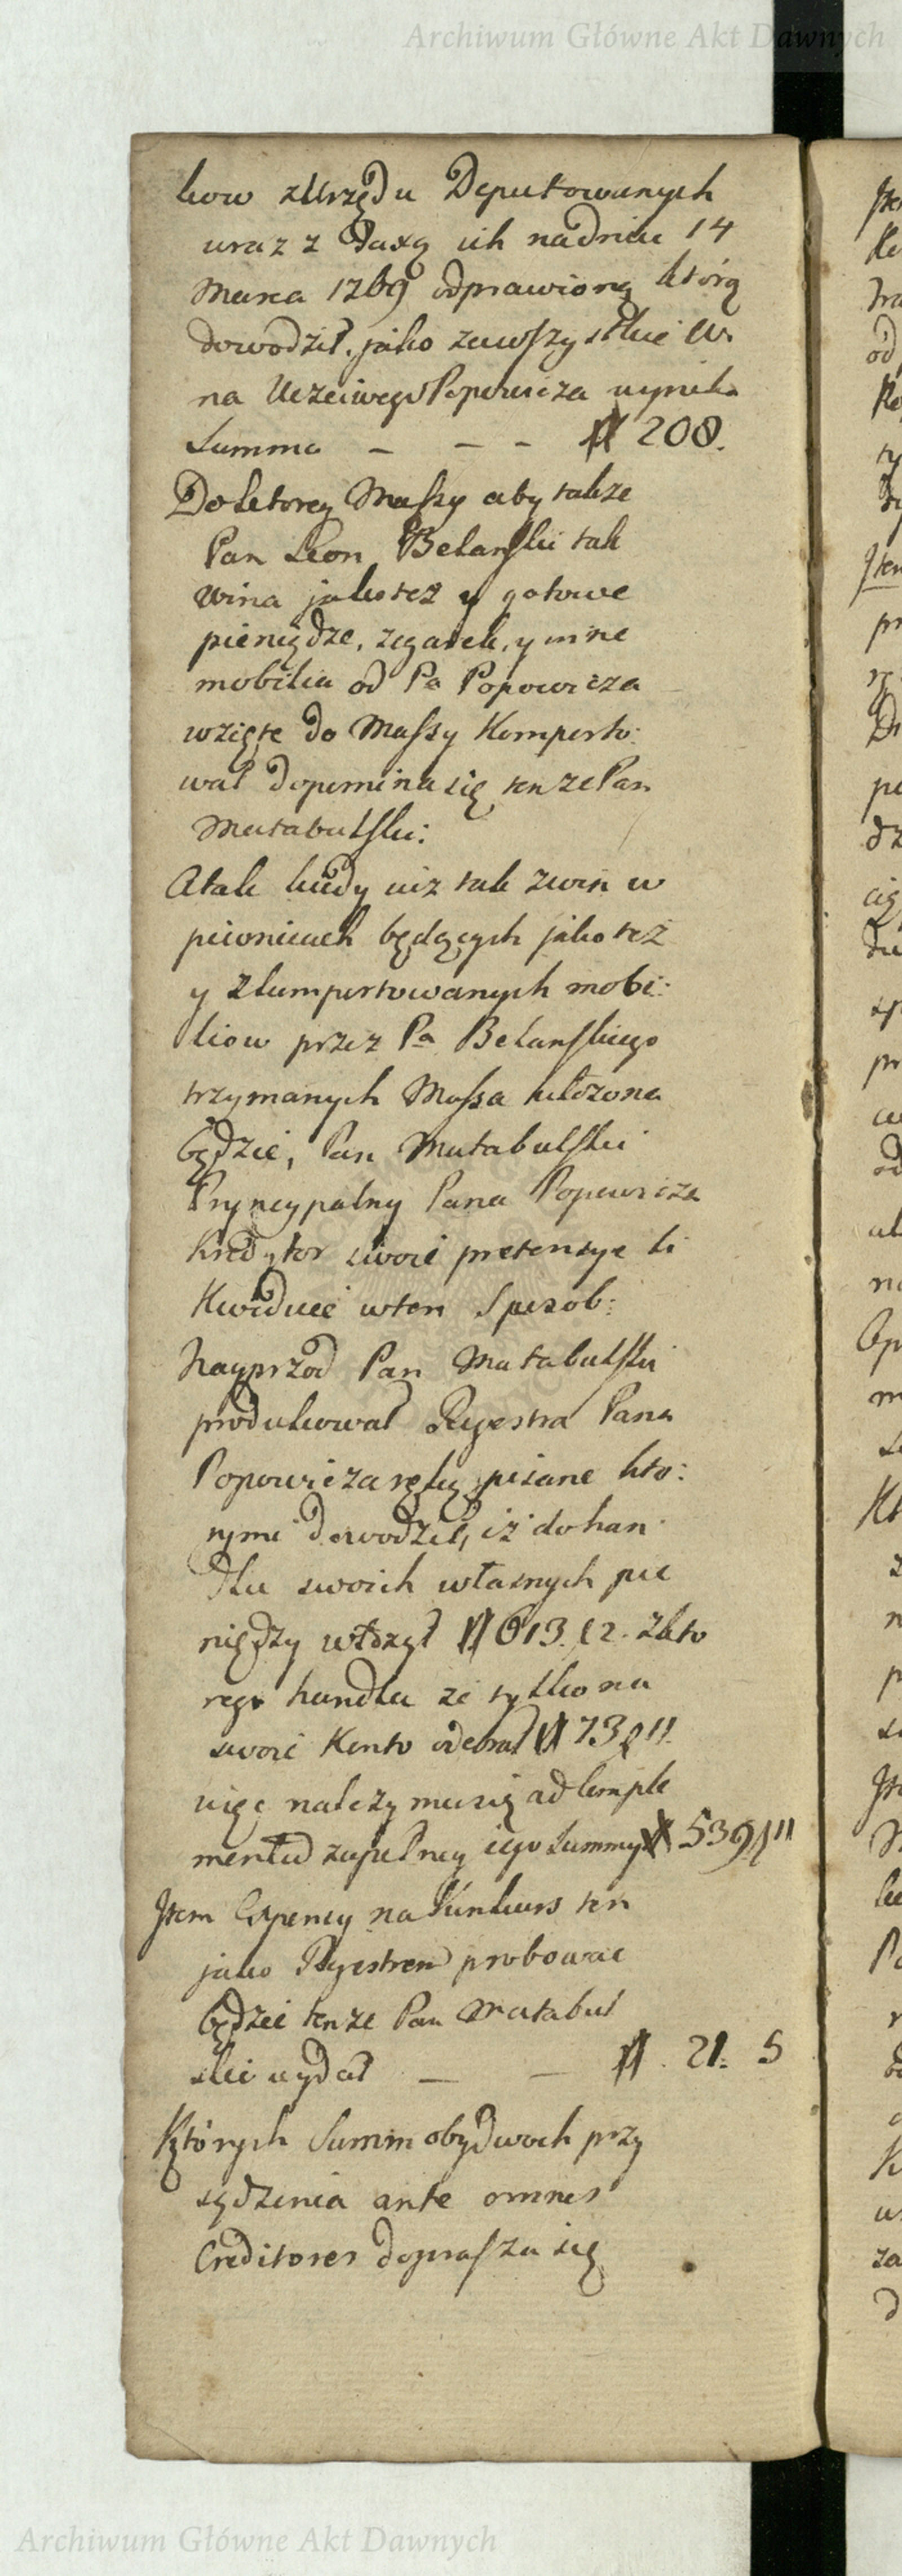 Archiwum Główne Akt Dawnych
kow z Urzędu Deputowanych
wraz z Taxą ich na dniu 14
Marca 1769 odprawioną którą
dowodził, jako za wszystkie
na Uczciwego Popowicza wynika
Summa - - - # 208.
Do ktorey Massy aby także
Pan Leon Belanski tak
wina jako też y gotowe
pieniądze, zegarek, y inne
mobilia od Pa Popowicza
wzięte do Massy Komporto:
wał dopomina się tenze Pan
Matabulski:
A tak kiedy iuz tak z win w
piwnicach będących jako też
y zkumportowanych mobi:
liow przez Pa Belanskiego
trzymanych Massa ułożona
będzie, Pan Matabulski
Pryncypalny Pana Popowicza
Kredytor swoie pretensye li
kwiduie w ten Sposob:
Nayprzod Pan Matabulski
produkował Reyestra Pana
Popowicza ręką pisane kto:
rymi dowodził, iż do han
dlu swoich własnych pie
niędzy włożył # 613. 12. z kto
rego handlu że tylko na
swoie Konto odebrał # 73 11.
więc należy mu się ad comple
mentum zupełney iego Summy # 539 11
Item Expensy na Konkurs ten
jako Reyestrem probować
będzie tenze Pan Matabul
ski wydał - - # . 21. 5
Których Summ obydwoch przy
sądzenia ante omnes
Creditores doprasza się
Archiwum Główne Akt Dawnych